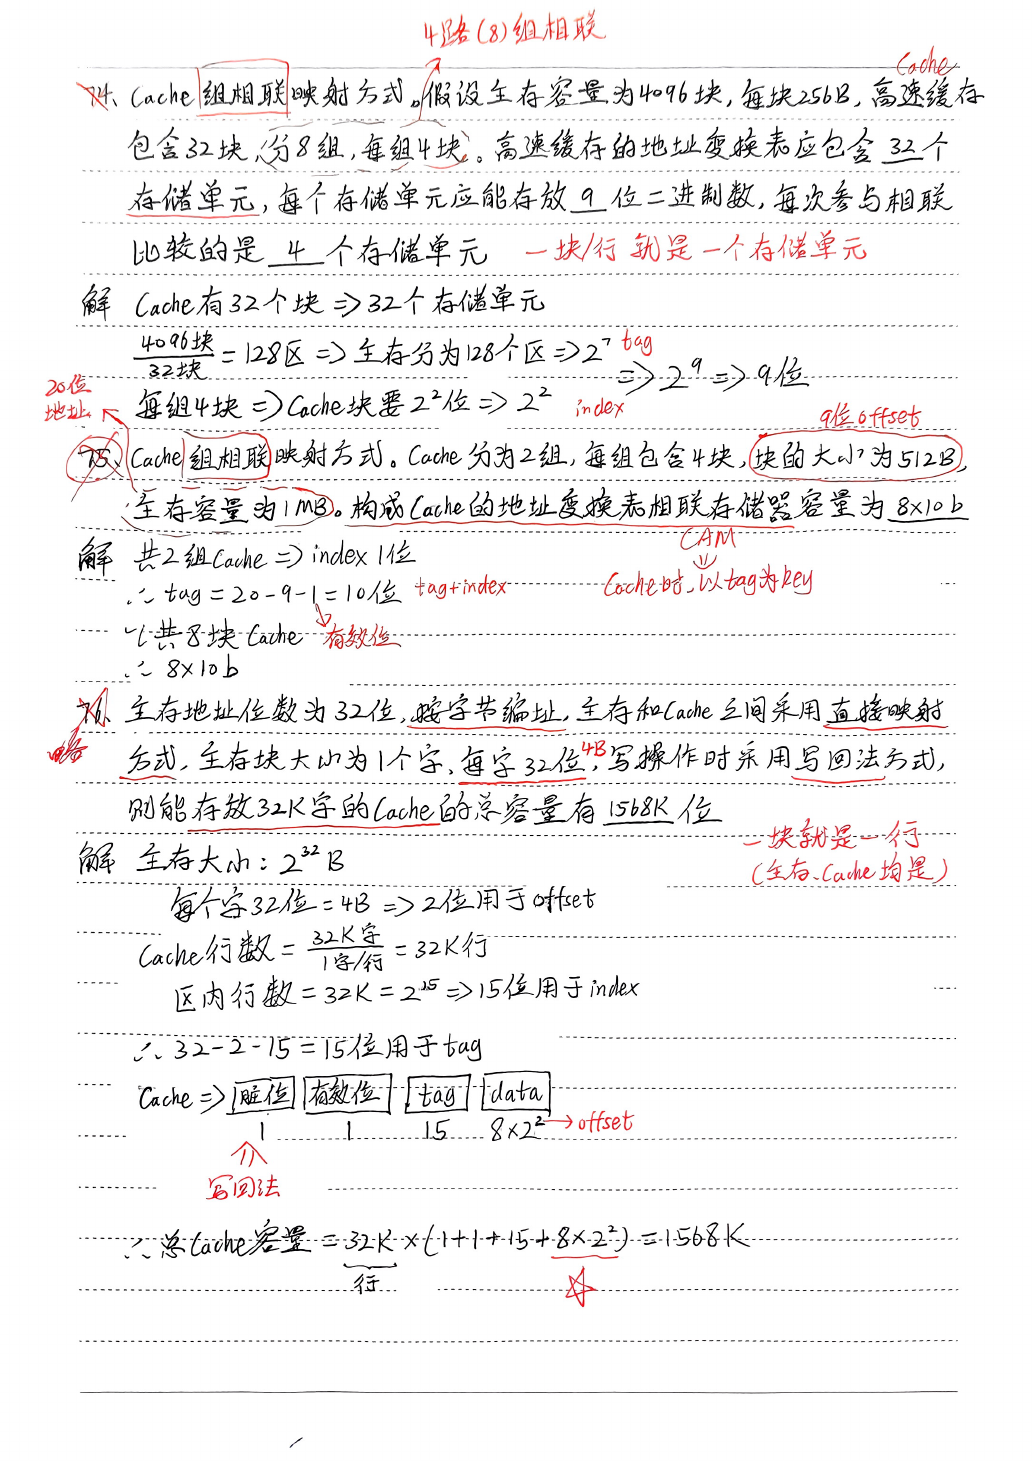 4路(8)组相联
Cache
74、Cache组相联映射方式。假设主存容量为4096块,每块256B,高速缓存
包含32块,分8组,每组4块。高速缓存的地址变换表应包含 32 个
存储单元,每个存储单元应能存放 9 位二进制数,每次参与相联
比较的是 4 个存储单元 一块/行 就是一个存储单元
解 Cache有32个块⇒32个存储单元
4096块/32块=128区⇒主存分为128个区⇒2^7 tag
⇒2^9⇒9位
每组4块⇒Cache块要2^2位⇒2^2 index
20位
地址
9位offset
75、Cache组相联映射方式。Cache分为2组,每组包含4块,块的大小为512B,
主存容量为1MB。构成Cache的地址变换表相联存储器容量为 8×10b
CAM
解 共2组Cache⇒index 1位
Cache时,以tag为key
∴tag=20-9-1=10位 tag+index
∵共8块Cache 有效位
∴8×10b
76、主存地址位数为32位,按字节编址,主存和Cache之间采用直接映射
略
方式,主存块大小为1个字,每字32位,4B 写操作时采用写回法方式,
则能存放32K字的Cache的总容量有 1568K 位
一块就是一行
(主存、Cache均是)
解 主存大小:2^32B
每个字32位=4B⇒2位用于offset
Cache行数=32K字/1字/行=32K行
区内行数=32K=2^15⇒15位用于index
∴32-2-15=15位用于tag
Cache⇒ 脏位 有效位 tag data
1 1 15 8×2^2→offset
写回法
∴总Cache容量=32K×(1+1+15+8×2^2)=1568K
行